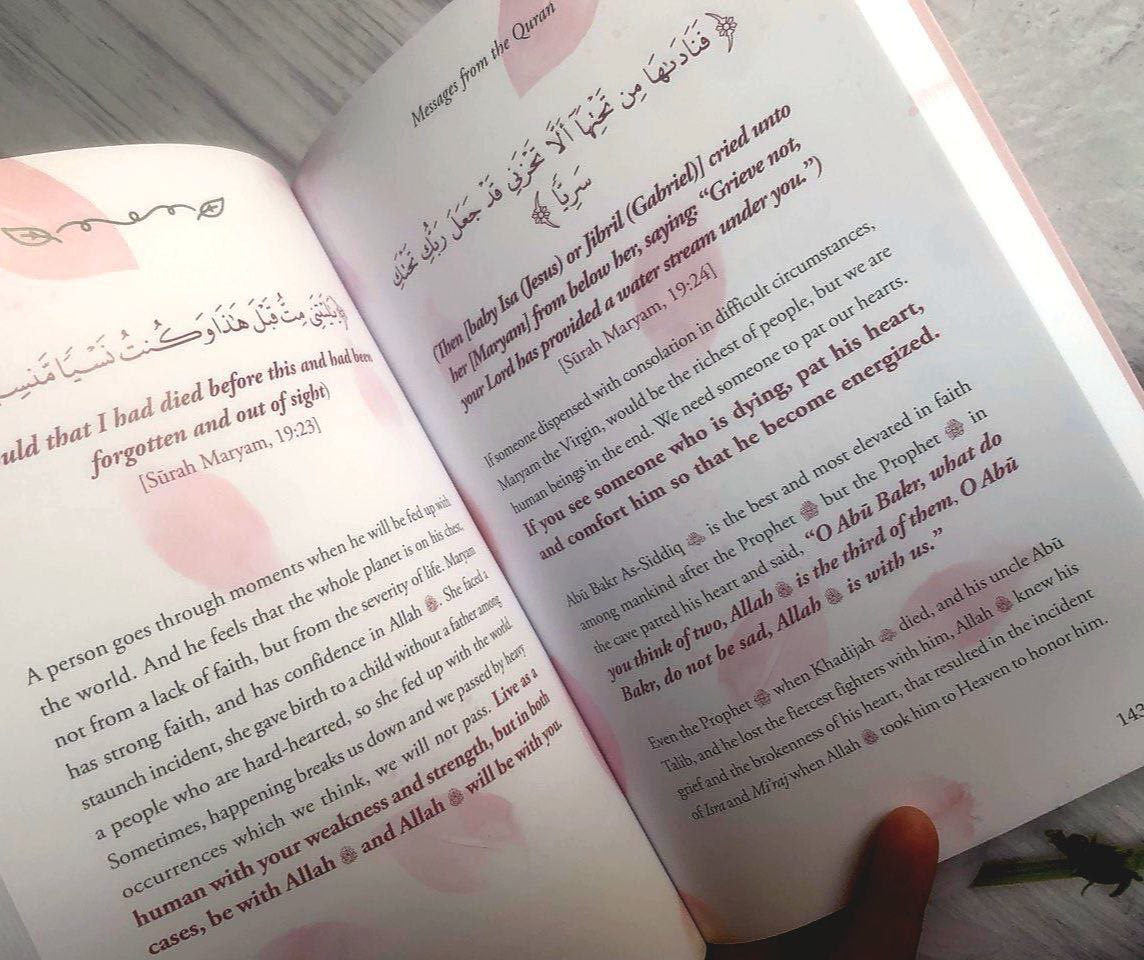 يَٰلَيْتَنِى مِتُّ قَبْلَ هَٰذَا وَكُنتُ نَسْيًا مَّنسِيًّا
uld that I had died before this and had been
forgotten and out of sight)
[Sūrah Maryam, 19:23]
A person goes through moments when he will be fed up with
the world. And he feels that the whole planet is on his chest,
not from a lack of faith, but from the severity of life. Maryam
has strong faith, and has confidence in Allah ﷻ. She faced a
staunch incident, she gave birth to a child without a father among
a people who are hard-hearted, so she fed up with the world.
Sometimes, happening breaks us down and we passed by heavy
occurrences which we think, we will not pass. Live as a
human with your weakness and strength, but in both
cases, be with Allah ﷻ and Allah ﷻ will be with you.
Messages from the Quran
﴿ فَنَادَىٰهَا مِن تَحْتِهَآ أَلَّا تَحْزَنِى قَدْ جَعَلَ رَبُّكِ تَحْتَكِ
سَرِيًّا ﴾
(Then [baby Isa (Jesus) or Jibril (Gabriel)] cried unto
her [Maryam] from below her, saying: “Grieve not,
your Lord has provided a water stream under you.”)
[Sūrah Maryam, 19:24]
If someone dispensed with consolation in difficult circumstances,
Maryam the Virgin, would be the richest of people, but we are
human beings in the end. We need someone to pat our hearts.
If you see someone who is dying, pat his heart,
and comfort him so that he become energized.
Abū Bakr As-Siddiq is the best and most elevated in faith
among mankind after the Prophet ﷺ but the Prophet ﷺ in
the cave patted his heart and said, “O Abū Bakr, what do
you think of two, Allah ﷻ is the third of them, O Abū
Bakr, do not be sad, Allah ﷻ is with us.”
Even the Prophet ﷺ when Khadijah died, and his uncle Abū
Talib, and he lost the fiercest fighters with him, Allah ﷻ knew his
grief and the brokenness of his heart, that resulted in the incident
of Isra and Mi'raj when Allah ﷻ took him to Heaven to honor him.
143